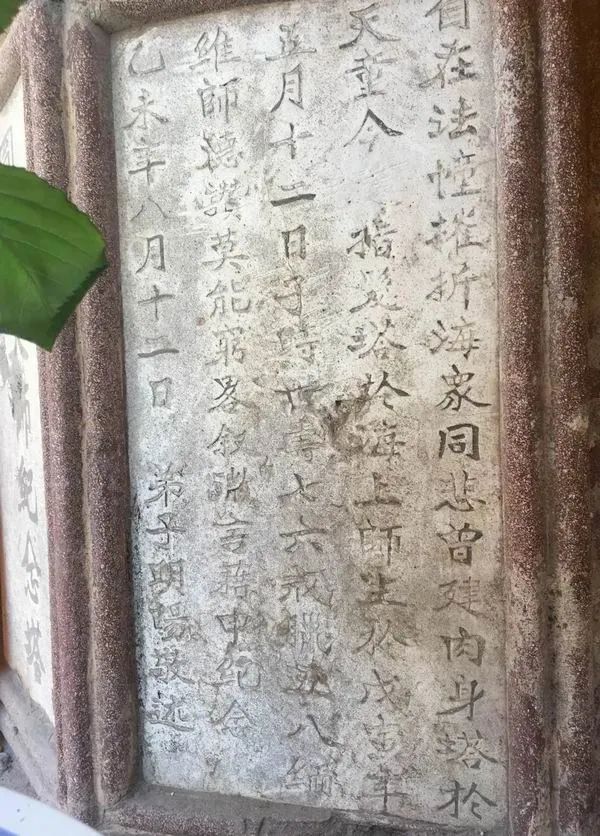 自在法幢摧折海众同悲曾建肉身塔於
天童今 搢髮塔於海上師生於戊寅年
五月十二日子時世壽七六戒臘五八緬
維師德讚莫能窮畧叙哀言藉申纪念
乙未年八月十二日 弟子明暘敬述
师纪念塔